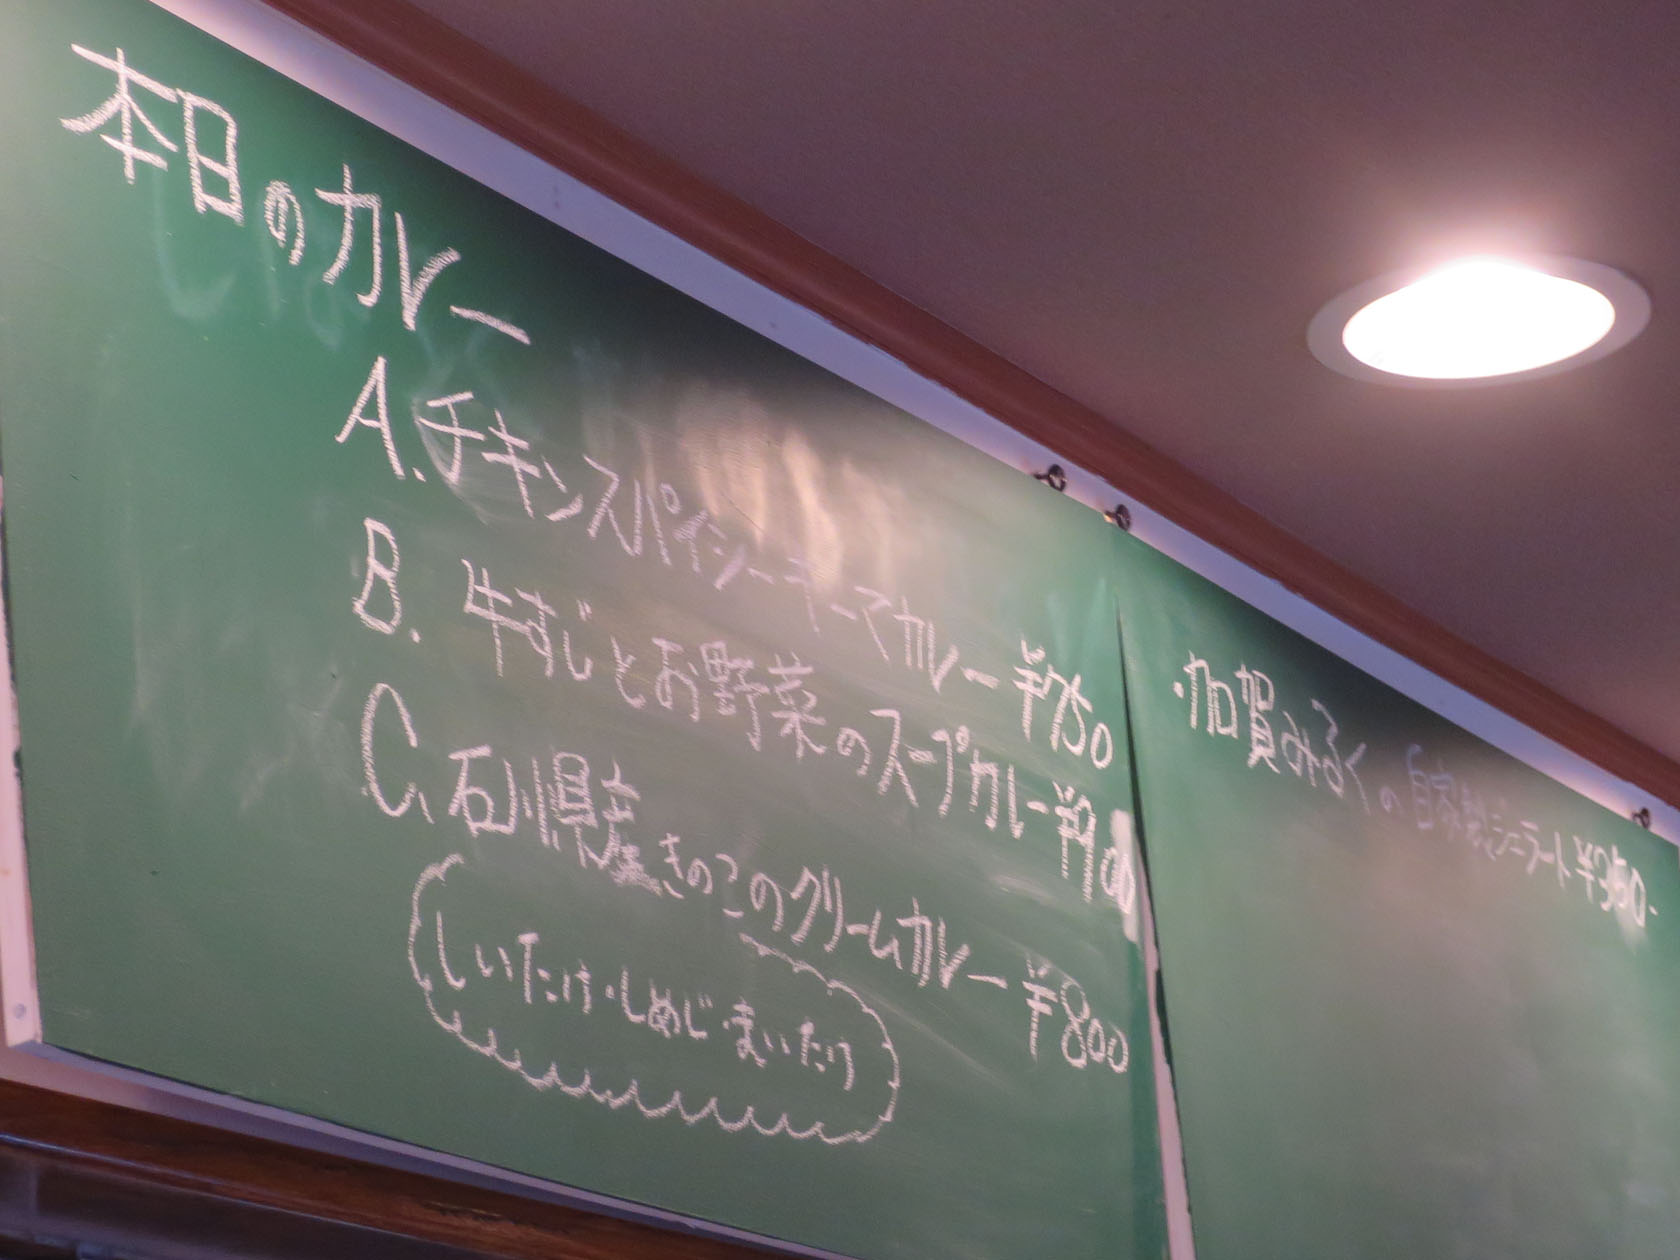 本日のカレー
A.チキンスパイシーキーマカレー ¥750
B. 牛すじとお野菜のスープカレー ¥900
C. 石川県産きのこのクリームカレー ¥800
しいたけ・しめじ・まいたけ
・加賀みるくの自家製ジェラート ¥350-